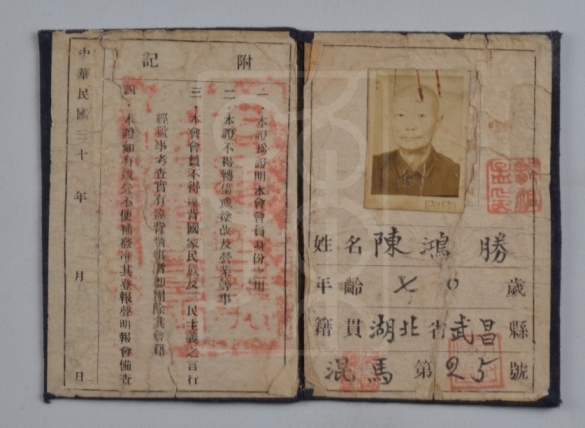 附記
一、本證為證明本會會員身份之用
二、本證不得轉借或塗改及營業等事
三、本會會員不得違背國家民族及三民主義之言行
經監事考查實有違背情事者即開除其會籍
四、本證如有遺失不便補發准其登報聲明報會備查
中華民國三十年　月　日
姓名陳鴻勝
年齡七〇歲
籍貫湖北省武昌縣
混馬第25號